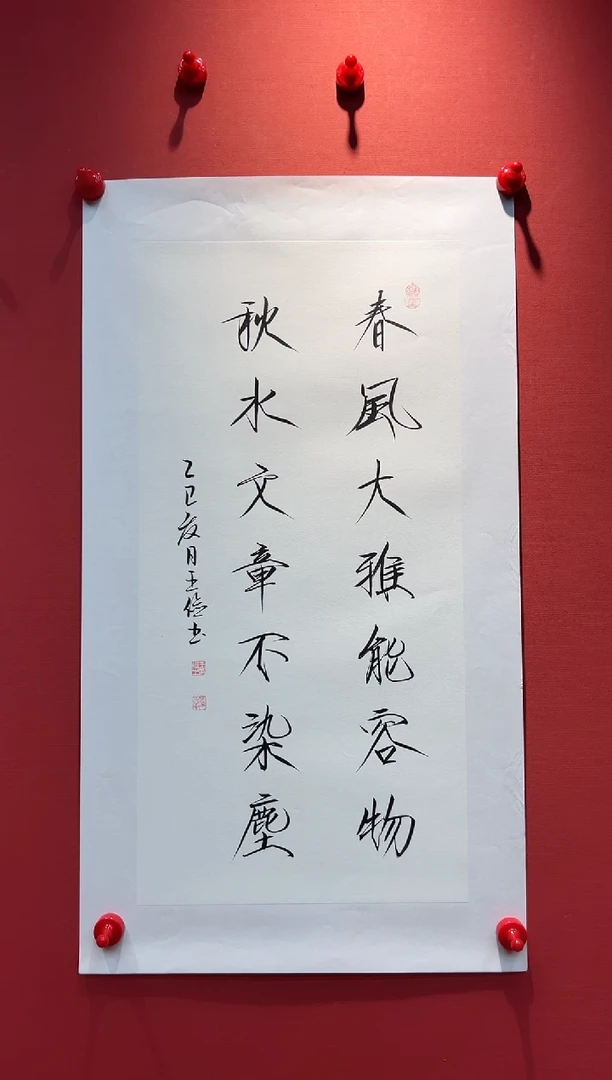 春風大雅能容物
秋水文章不染塵
乙巳夏月王俭书